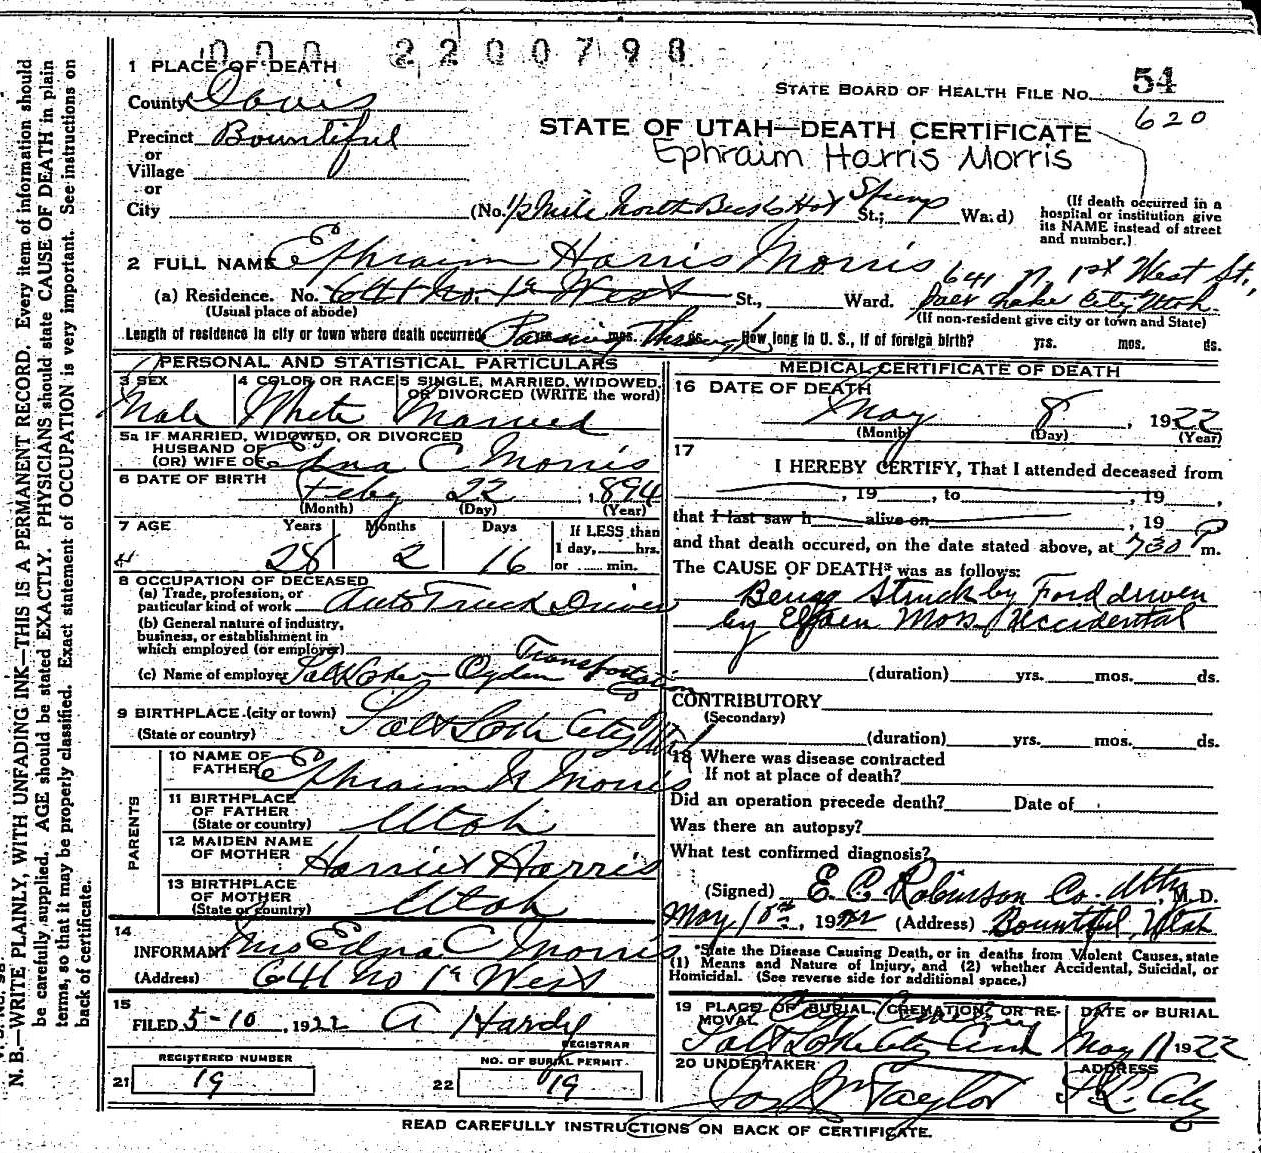 000 2200798
1 PLACE OF DEATH
County Davis
Precinct Bountiful
or
Village
or
City
STATE BOARD OF HEALTH FILE No. 54
620
STATE OF UTAH—DEATH CERTIFICATE
Ephraim Harris Morris
(No. 1/2 Mile North Becks Hot Springs St.; Ward)
(If death occurred in a
hospital or institution give
its NAME instead of street
and number.)
2 FULL NAME Ephraim Harris Morris
(a) Residence. No. 641 No. 1st West St., Ward.
(Usual place of abode)
641 N. 1st West St.,
Salt Lake City Utah.
(If non-resident give city or town and State)
Length of residence in city or town where death occurred Passing Through yrs. mos. ds. How long in U. S., if of foreign birth? yrs. mos. ds.
PERSONAL AND STATISTICAL PARTICULARS
3 SEX
Male
4 COLOR OR RACE
White
5 SINGLE, MARRIED, WIDOWED,
OR DIVORCED (WRITE the word)
Married
5a IF MARRIED, WIDOWED, OR DIVORCED
HUSBAND OF
(OR) WIFE OF Edna C Morris
6 DATE OF BIRTH
Feby 22, 1894
(Month) (Day) (Year)
7 AGE Years Months Days
28 2 16
If LESS than
1 day, hrs.
or min.
8 OCCUPATION OF DECEASED
(a) Trade, profession, or
particular kind of work Auto Truck Driver
(b) General nature of industry,
business, or establishment in
which employed (or employer)
(c) Name of employer Salt Lake - Ogden Transportation Co
9 BIRTHPLACE (city or town)
(State or country) Salt Lake City Utah
PARENTS
10 NAME OF
FATHER Ephraim Morris
11 BIRTHPLACE
OF FATHER
(State or country) Utah
12 MAIDEN NAME
OF MOTHER Harriet Harris
13 BIRTHPLACE
OF MOTHER
(State or country) Utah
14
INFORMANT Mrs Edna C Morris
(Address) 641 No 1st West
15
FILED 5-10, 1922 A Hardy
REGISTRAR
REGISTERED NUMBER
21 19
NO. OF BURIAL PERMIT
22 19
MEDICAL CERTIFICATE OF DEATH
16 DATE OF DEATH
May 8, 1922
(Month) (Day) (Year)
17
I HEREBY CERTIFY, That I attended deceased from
, 19 , to , 19 ,
that I last saw h alive on , 19
and that death occured, on the date stated above, at 730 P m.
The CAUSE OF DEATH* was as follows:
Being Struck by Ford driven
by Moss Accidental
(duration) yrs. mos. ds.
CONTRIBUTORY
(Secondary)
(duration) yrs. mos. ds.
18 Where was disease contracted
If not at place of death?
Did an operation precede death? Date of
Was there an autopsy?
What test confirmed diagnosis?
(Signed) E. C. Robinson Co. Atty, M. D.
May 10th, 1922 (Address) Bountiful, Utah
*State the Disease Causing Death, or in deaths from Violent Causes, state
(1) Means and Nature of Injury, and (2) whether Accidental, Suicidal, or
Homicidal. (See reverse side for additional space.)
19 PLACE OF BURIAL, CREMATION, OR RE-
MOVAL
City Cemetery
Salt Lake City Utah
DATE OF BURIAL
May 11 1922
20 UNDERTAKER
Jos Wm Taylor
ADDRESS
S. L. City
READ CAREFULLY INSTRUCTIONS ON BACK OF CERTIFICATE.
N. B.—WRITE PLAINLY, WITH UNFADING INK—THIS IS A PERMANENT RECORD. Every item of information should
be carefully supplied. AGE should be stated EXACTLY. PHYSICIANS should state CAUSE OF DEATH in plain
terms, so that it may be properly classified. Exact statement of OCCUPATION is very important. See instructions on
back of certificate.